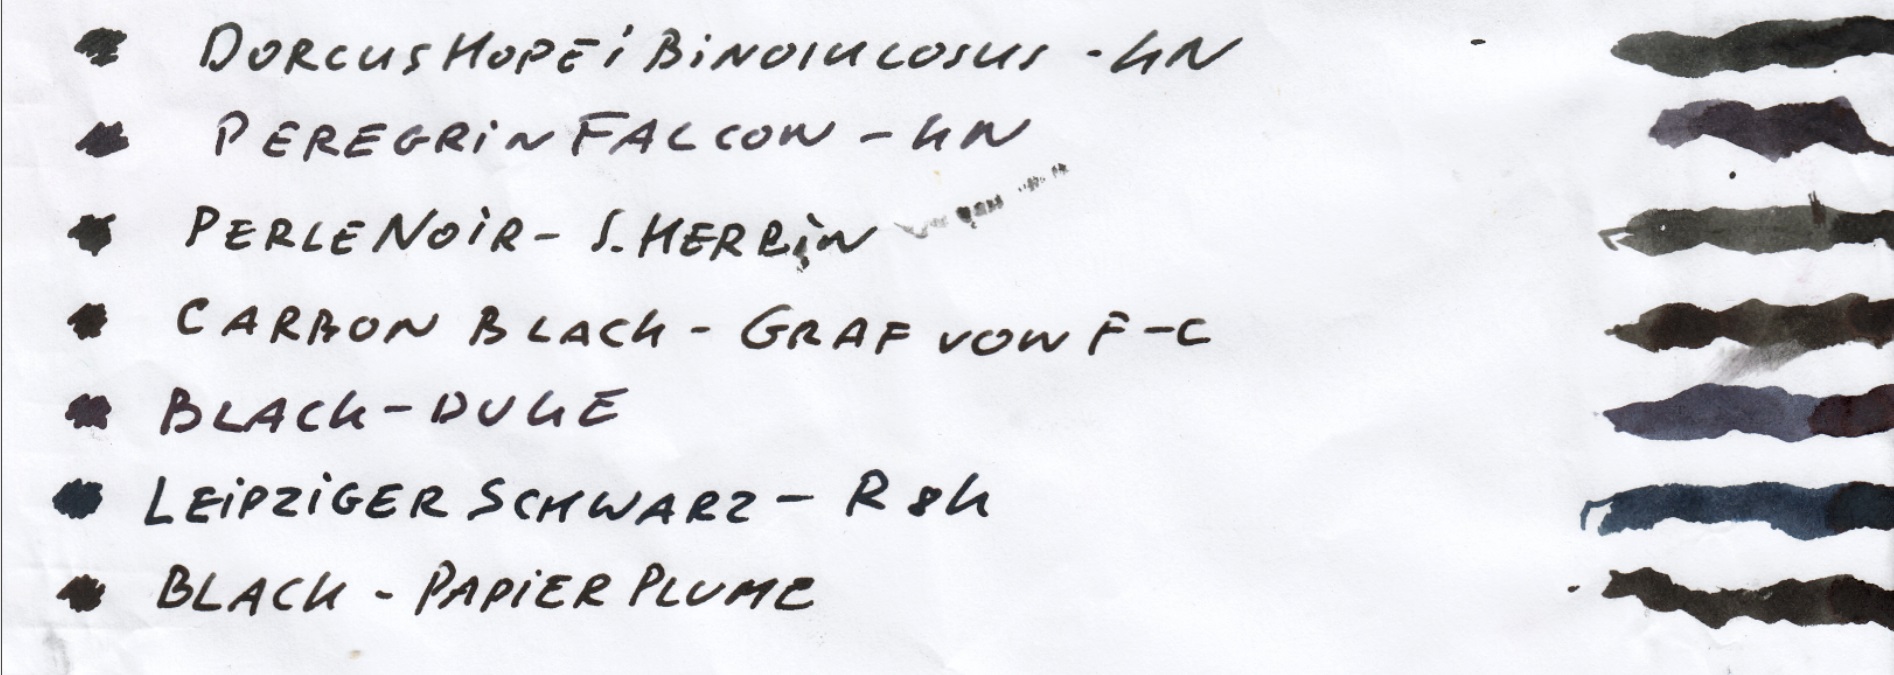 DORCUS HOPEI BINODULOSUS - KN
PEREGRIN FALCON - KN
PERLE NOIR - J. HERBIN
CARBON BLACK - GRAF VON F-C
BLACK - DUKE
LEIPZIGER SCHWARZ - R&K
BLACK - PAPIER PLUME